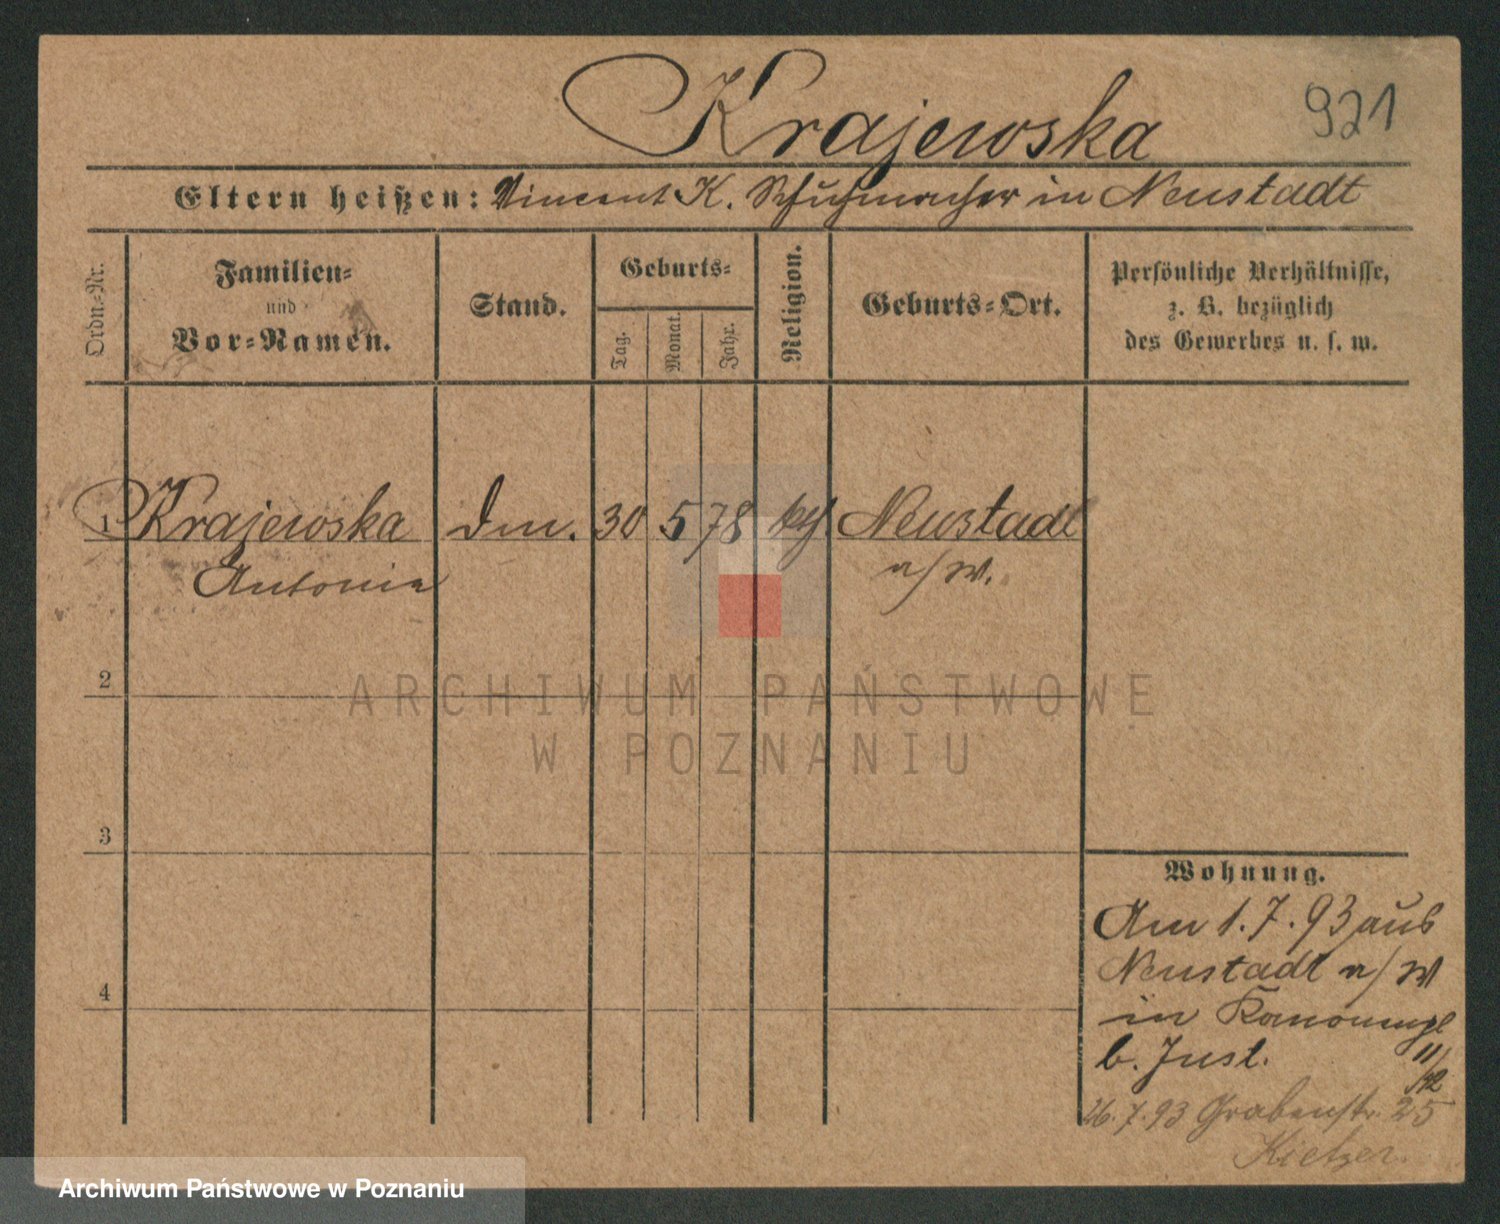 Krajewska
921
Eltern heißen: Vincent K. Schuhmacher in Neustadt
Ordn.-Nr.
Familien-
und
Vor-Namen.
Stand.
Geburts-
Tag.
Monat.
Jahr.
Religion.
Geburts-Ort.
Persönliche Verhältnisse,
z. B. bezüglich
des Gewerbes u. s. w.
1 Krajewska Dm. 30 5 78 kth. Neustadt
Antonie a/W.
2
3
4
Wohnung.
Am 1.7.93 aus
Neustadt a/W
in Kanonenpl
b. Just. 11/12
26.7.93 Grabenstr. 25
Kietzer.
ARCHIWUM PAŃSTWOWE
W POZNANIU
Archiwum Państwowe w Poznaniu